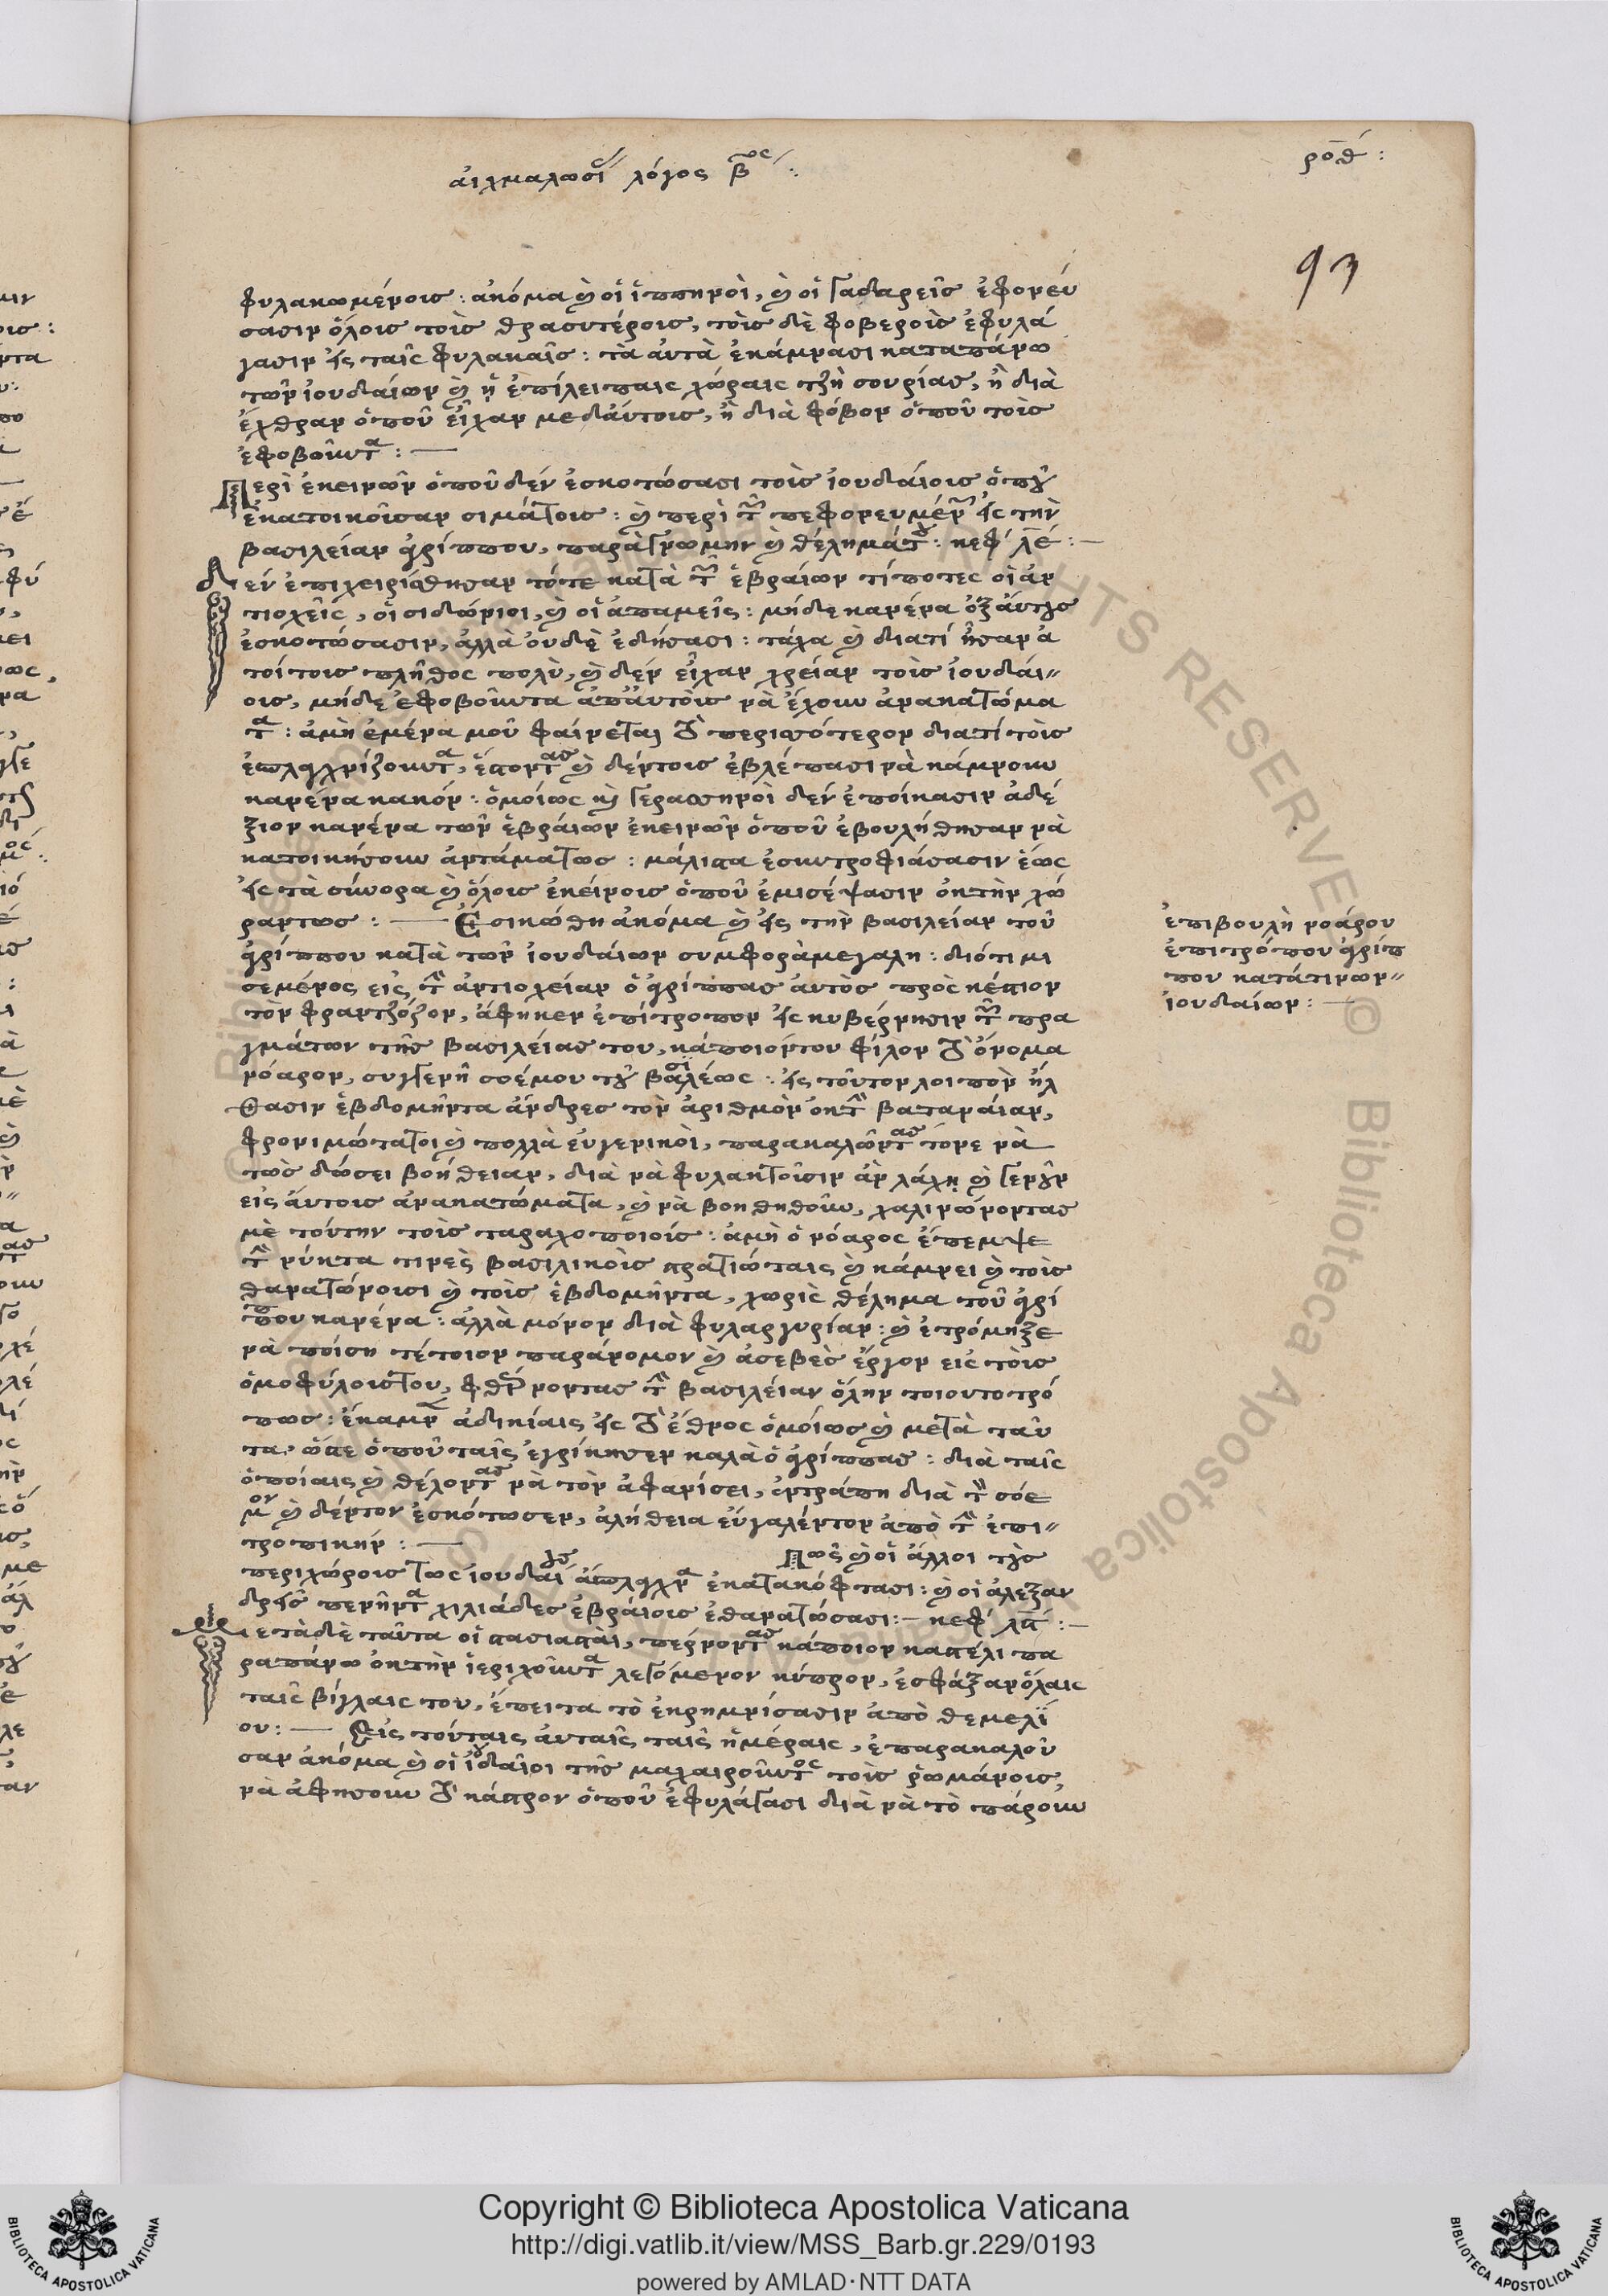 αἰχμαλωσί λόγος βος :
ροθ :
93
φυλακωμένοις : ἀκόμα καὶ οἱ ἱππηνοὶ, καὶ οἱ γαδαρεῖς ἐφονεύ
σασιν ὅλοις τοὶς θρασυτέροις, τοὶς δὲ φοβεροὶς ἐφυλά
γασιν εἰς ταῖς φυλακαῖς : τὰ αὐτὰ ἐκάμνασι καταπάνω
τῶν ἰουδαίων καὶ ἡ ἐπίλειπαις χώραις τῆς σουρίας, ἢ διὰ
ἔχθραν ὁποῦ εἶχαν μεδαύτοις, ἢ διὰ φόβον ὁποῦ τοὶς
ἐφοβοῦντα : —
Περὶ ἐκεινῶν ὁποῦ δέν ἐσκοτώσασι τοὶς ἰουδαίοις ὁποῦ
ἐκατοικοῖσαν σιμάτοις : καὶ περὶ τῶν πεφονευμένων εἰς τὴν
βασιλείαν ἀγρίππου, παρὰ γνώμην καὶ θέλημάτου : κεφ λε : —
Δεν ἐπιχειρίσθησαν τότε κατὰ τῶν ἑβραίων τίποτες οἱ ἀν
τιοχεῖς, οἱ σιδώνιοι, καὶ οἱ ἀπαμεῖς : μήδε κανένα ὀξ αὐτοὺς
ἐσκοτώσασιν, ἀλλὰ οὐδὲ ἐδήσασι : τάχα καὶ διατί ἦσαν ἀ
τοίτοις πλῆθος πολὺ, καὶ δὲν εἶχαν χρείαν τοὶς ἰουδάι〃
οις, μήδε ἐφοβοῦντα ἀπαυτοὶς νὰ ἔχουν ἀνακατώμα
τα : ἀμὴ ἐμένα μοῦ φαίνεται τὸ περισότερον διατί τοὶς
καὶ δέντοις ἐβλέπασι νὰ κάμνουν
κανένα κακόν : ὁμοίως καὶ γερασηνοὶ δέν ἐποίκασιν ἀδέ
ξιον κανένα τῶν ἑβραίων ἐκεινῶν ὁποῦ ἐβουλήθησαν νὰ
κατοικήσουν ἀντάματως : μάλιστα ἐσυντροφιάσασιν ἕως
εἰς τὰ σύνορα καὶ ὅλοις ἐκείνοις ὁποῦ ἐμισέψασιν ὀκτὴν χώ
ραντως : — Ἐσικώθη ἀκόμα καὶ εἰς τὴν βασιλείαν τοῦ
ἀγρίππου κατὰ τῶν ἰουδαίων συμφορὰ μεγάλη : διότι μι
σεμένος εἰς τὴν ἀντιοχείαν ὁ ἀγρίππας αὐτὸς πρὸς κέστιον
τὸν φραντζόζον, ἄφηκεν ἐπίτροπον εἰς κυβέρνησιν τῶν πρα
γμάτων τῆς βασιλείας του, κάποιοντου φίλον τὸ ὄνομα
νόαρον, συγγενῆ σοέμου τοῦ βασιλέως : εἰς τοῦτον λοιπὸν ἦλ
θασιν ἑβδομῆντα ἄνδρες τὸν ἀριθμὸν ὀκτὴν βαταναίαν,
φρονιμώτατοι καὶ πολλὰ εὐγενικοὶ, παρακαλῶντας τόνε νὰ
τῶς δώσει βοήθειαν, διὰ νὰ φυλακτοῦσιν ἂν λάχῃ καὶ γενοῦν
εἰς αὔτοις ἀνακατώματα, καὶ νὰ βοηθηθοῦν, χαλινώνοντας
μὲ τούτην τοὶς ταραχοποιοὶς : ἀμὴ ὁ νόαρος ἔπεμψε
τὴν νύκτα τινὲς βασιλικοὶς στρατιώταις καὶ κάμνει καὶ τοὶς
θανατώνουσι καὶ τοὶς ἑβδομῆντα, χωρὶς θέλημα τοῦ ἀγρί
ππου κανένα : ἀλλὰ μόνον διὰ φυλαργυρίαν : καὶ ἐτρόμηξε
νὰ ποίση τέτοιον παράνομον καὶ ἀσεβὲς ἔργον εἰς τοὶς
ὁμοφύλοιστου, φθείροντας τὴν βασιλείαν ὅλην τοιουτοτρό
πως : ἔκαμνεν ἀδικίαις εἰς τὸ ἔθνος ὁμοίως καὶ μετὰ ταῦ
τα, ὥστε ὁποῦ ταῖς ἐγρίκησεν καλὰ ὁ ἀγρίππας : διὰ ταῖς
ὁποίαις καὶ θέλοντας νὰ τὸν ἀφανίσει, ἐντράπη διὰ τὸν σόε
μον καὶ δέντον ἐσκότωσεν, ἀλήθεια εὐγαλέντον ἀπὸ τὴν ἐπι〃
τροπικήν : —
Πῶς καὶ οἱ ἄλλοι τοὺς
περιχώροις τως ἰουδαίους ἐκατακόφτασι : καὶ οἱ ἀλεξαν
δρεῖς πενῆντα χιλιάδες ἑβραίοις ἐθανατώσασι : — κεφ λϛ : —
Μετὰ δὲ ταῦτα οἱ στασιασταὶ, πέρνοντας κάποιον καστέλι πα
ραπάνω ὀκτὴν ἱεριχοῦντα λεγόμενον κύπρον, ἐσφάξαν ὅλαις
ταῖς βίγλαις του, ἔπειτα τὸ ἐκρημνίσασιν ἀπὸ θεμελί
ου : — Εἰς τούταις αὐταῖς ταῖς ἡμέραις, ἐπαρακαλοῦ
σαν ἀκόμα καὶ οἱ ἰουδαῖοι τῆς μαχαιροῦντος τοὶς ῥωμάνοις,
νὰ ἀφήσουν τὸ κάστρον ὁποῦ ἐφυλάγασι διὰ νὰ τὸ πάρουν
ἐπιβουλὴ νοάρου
ἐπιτρόπου ἀγρίπ
που κατάτινων〃
ἰουδαίων : —
Copyright © Biblioteca Apostolica Vaticana
http://digi.vatlib.it/view/MSS_Barb.gr.229/0193
powered by AMLAD·NTT DATA
BIBLIOTECA APOSTOLICA VATICANA
BIBLIOTECA APOSTOLICA VATICANA